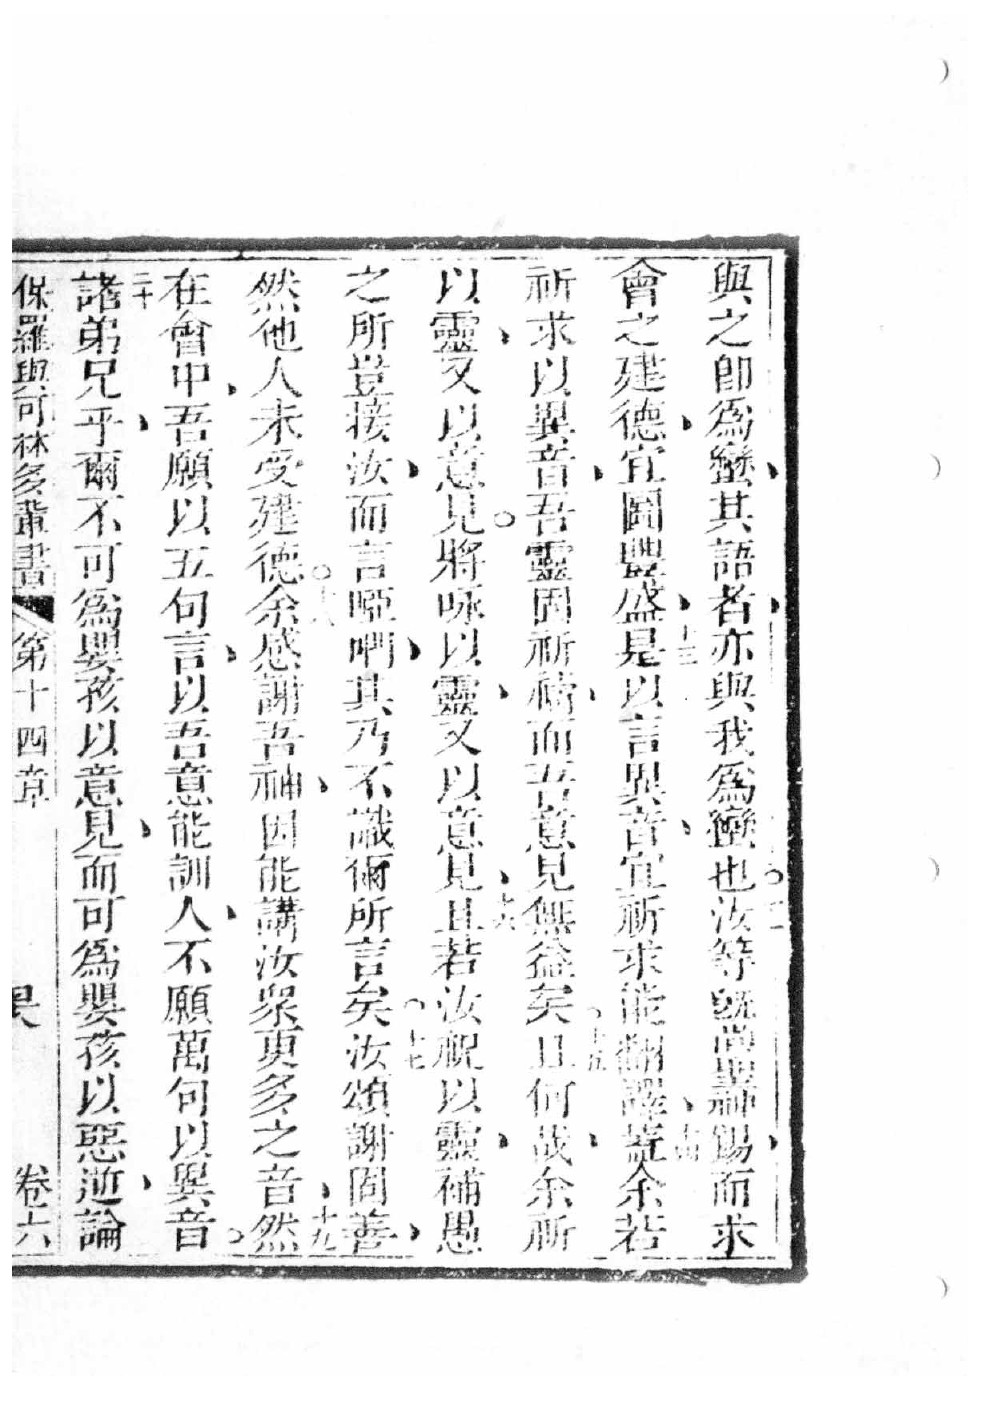 與之卽爲蠻其語者亦與我爲蠻也十二汝等旣尚聖神錫而求
會之建德宜圖豐盛十三是以言異音宜祈求能翻譯十四葢余若
祈求以異音吾靈固祈禱而吾意見無益矣十五且何故余祈
以靈又以意見將咏以靈又以意見十六且若汝祝以靈補愚
之所豈接汝而言啞㗎其乃不識爾所言矣十七汝頌謝固善
然他人未受建德十八余感謝吾神因能講汝眾更多之音十九然
在會中吾願以五句言以吾意能訓人不願萬句以異音
二十諸弟兄乎爾不可爲嬰孩以意見而可爲嬰孩以惡逆論
保羅與可林多輩書 第十四章 卷六